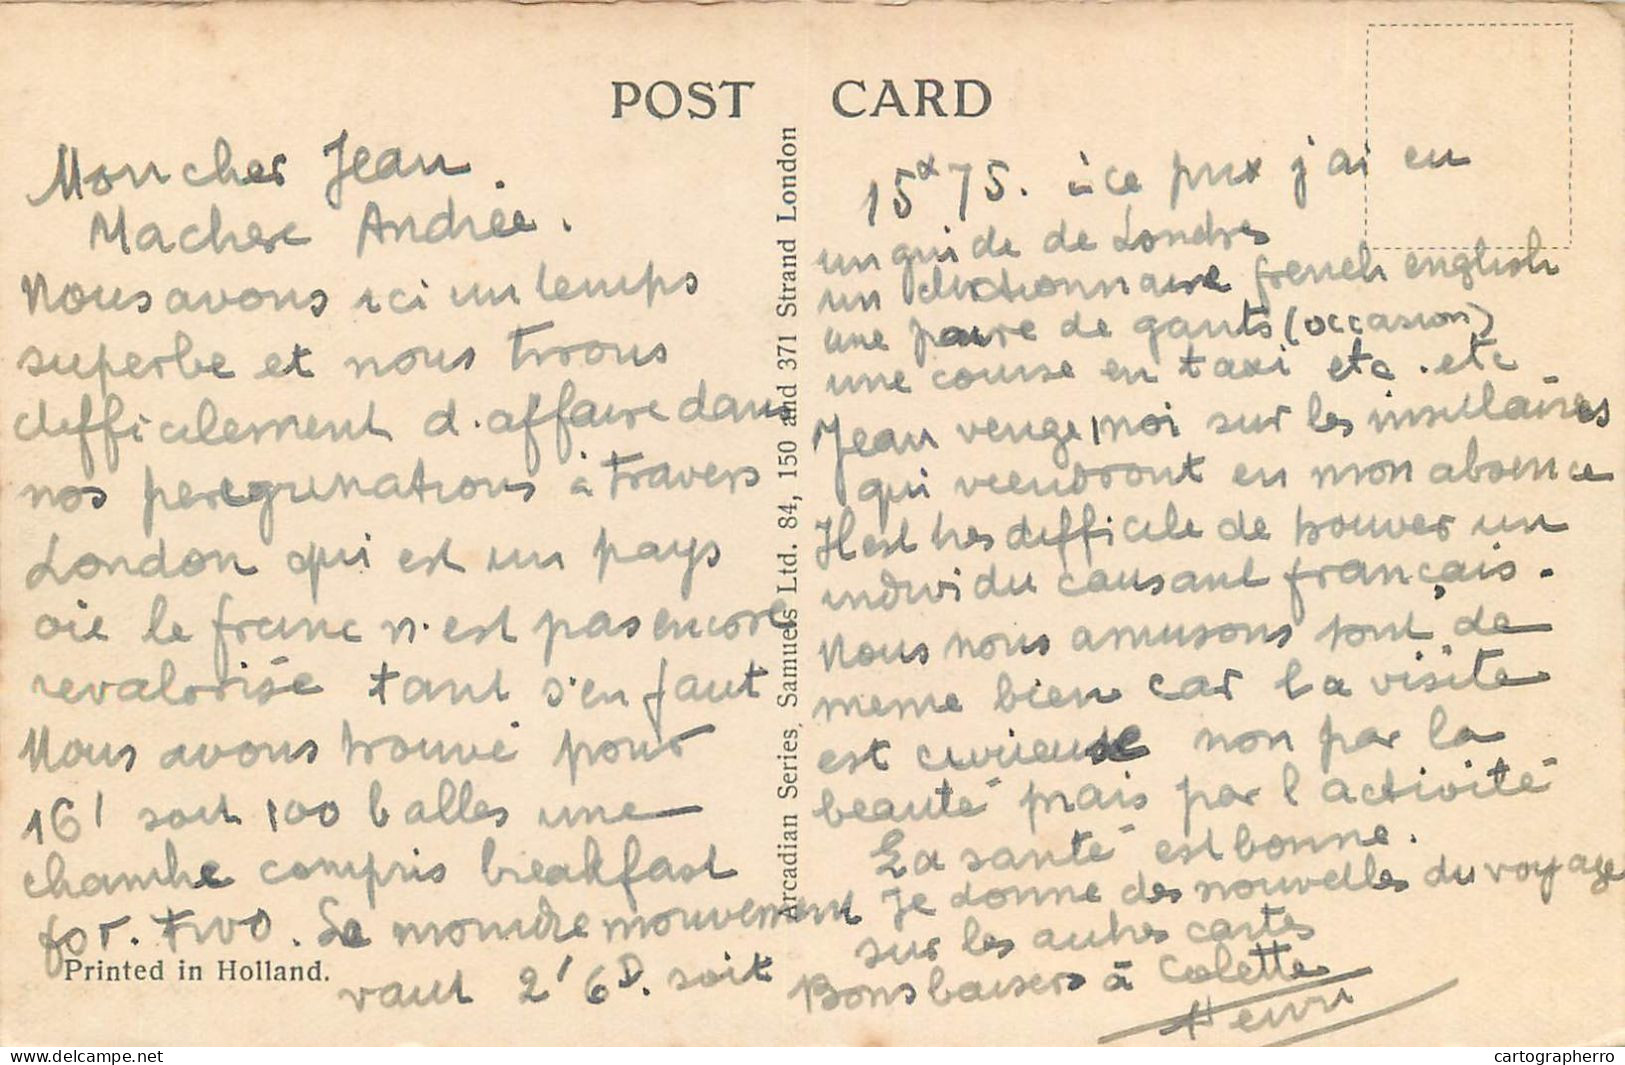 POST CARD
Mon cher Jean.
Ma chere Andrée.
Nous avons ici un temps
superbe et nous tirons
difficilement d'affaire dans
nos peregrinations à travers
London qui est un pays
où le franc n'est pas encore
revalorisé tant s'en faut
Nous avons trouvé pour
16' soit 100 balles une
chambre compris breakfast
for. two. Le moindre mouvement
vaut 2'6D. soit
Printed in Holland.
Arcadian Series, Samuels Ltd. 84, 150 and 371 Strand London
15x75. à ce prix j'ai eu
un guide de Londres
un dictionnaire french english
une paire de gants (occasion)
une course en taxi etc. etc
Jean venge moi sur les insulaires
qui viendront en mon absence
Il est tres difficile de trouver un
individu causant français.
Nous nous amusons tout de
meme bien car la visite
est curieuse non par la
beauté mais par l'activité
La santé est bonne.
Je donne des nouvelles du voyage
sur les autres cartes
Bons baisers à Colette
Henri
delcampe.net
cartographerro